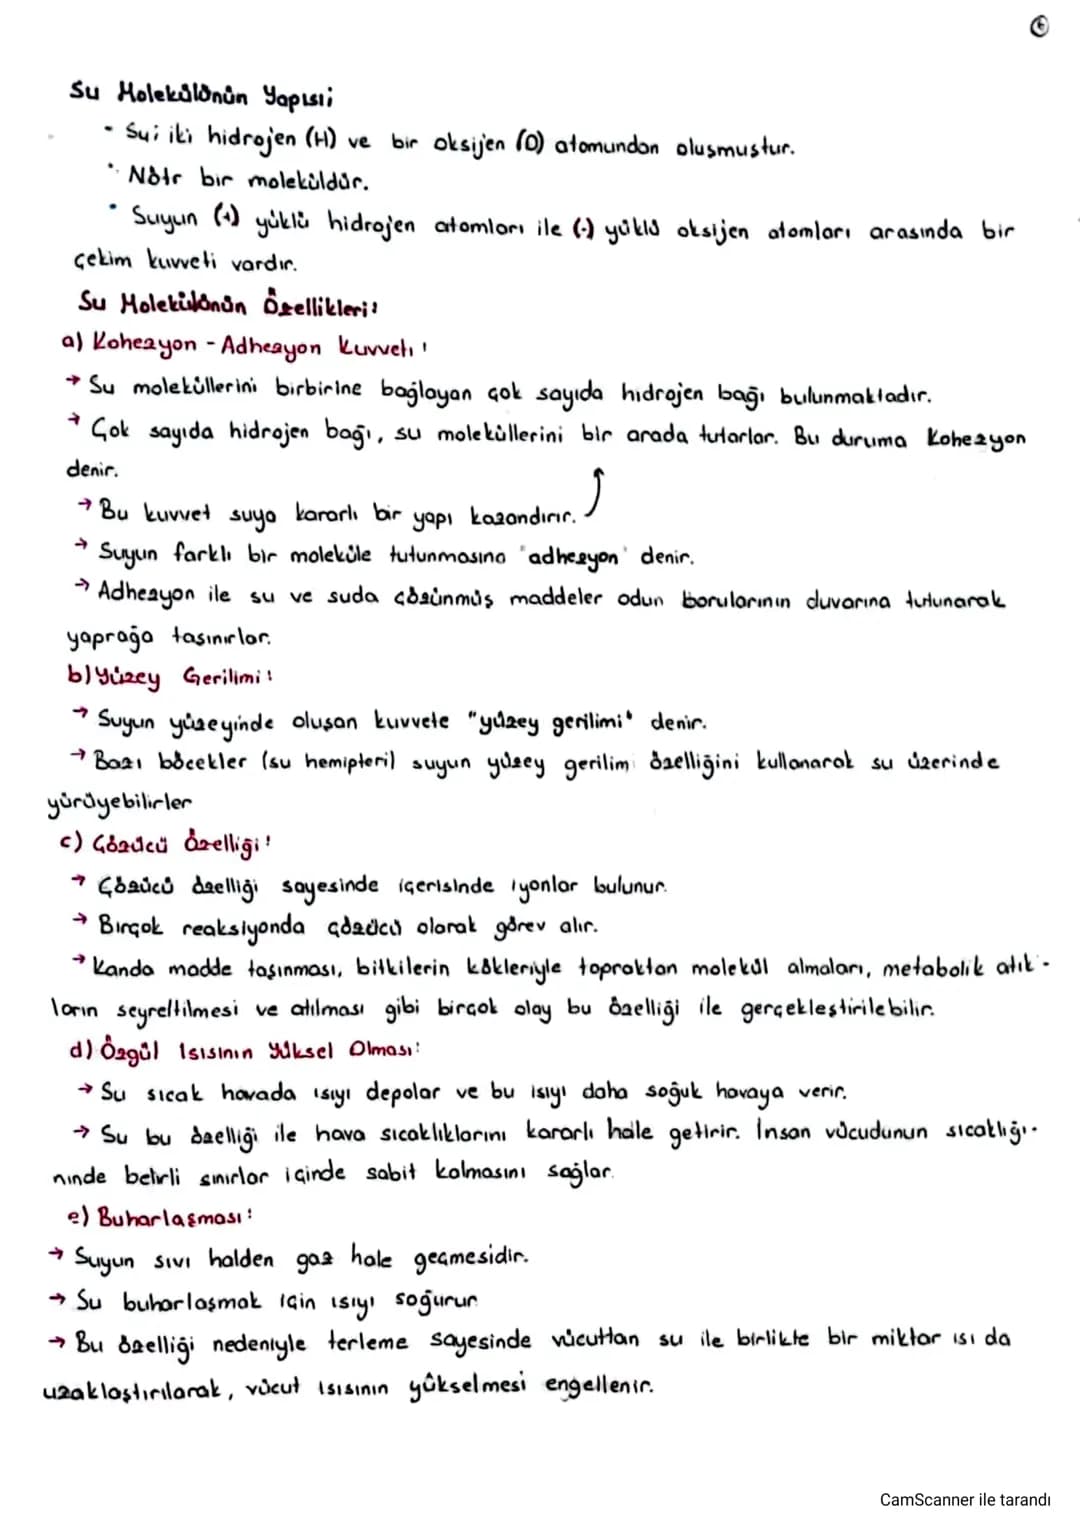 6
Su Molekülünün Yapısı;
- Su; iki hidrojen (H) ve bir oksijen (O) atomundan oluşmuştur.
• Nötr bir moleküldür.
• Suyun (+) yüklü hidrojen atomları ile (-) yüklü oksijen atomları arasında bir
çekim kuvveti vardır.
Su Molekülünün Özellikleri:
a) Kohezyon - Adhezyon Kuvveti:
→ Su moleküllerini birbirine bağlayan çok sayıda hidrojen bağı bulunmaktadır.
→ Çok sayıda hidrojen bağı, su moleküllerini bir arada tutarlar. Bu duruma kohezyon
denir.
→ Bu kuvvet suya kararlı bir yapı kazandırır.
→ Suyun farklı bir moleküle tutunmasına "adhezyon" denir.
→ Adhezyon ile su ve suda çözünmüş maddeler odun borularının duvarına tutunarak
yaprağa taşınırlar.
b) Yüzey Gerilimi:
→ Suyun yüzeyinde oluşan kuvvete "yüzey gerilimi" denir.
→ Bazı böcekler (su hemipteri) suyun yüzey gerilimi özelliğini kullanarak su üzerinde
yürüyebilirler
c) Çözücü Özelliği:
→ Çözücü özelliği sayesinde içerisinde iyonlar bulunur.
→ Birçok reaksiyonda çözücü olarak görev alır.
→ Kanda madde taşınması, bitkilerin kökleriyle topraktan molekül almaları, metabolik atık-
ların seyreltilmesi ve atılması gibi birçok olay bu özelliği ile gerçekleştirilebilir.
d) Özgül Isısının Yüksel Olması:
→ Su sıcak havada ısıyı depolar ve bu ısıyı daha soğuk havaya verir.
→ Su bu özelliği ile hava sıcaklıklarını kararlı hale getirir. İnsan vücudunun sıcaklığı-
nında belirli sınırlar içinde sabit kalmasını sağlar.
e) Buharlaşması:
→ Suyun sıvı halden gaz hale geçmesidir.
→ Su buharlaşmak için ısıyı soğurur
→ Bu özelliği nedeniyle terleme sayesinde vücuttan su ile birlikte bir miktar ısı da
uzaklaştırılarak, vücut ısısının yükselmesi engellenir.
CamScanner ile tarandı